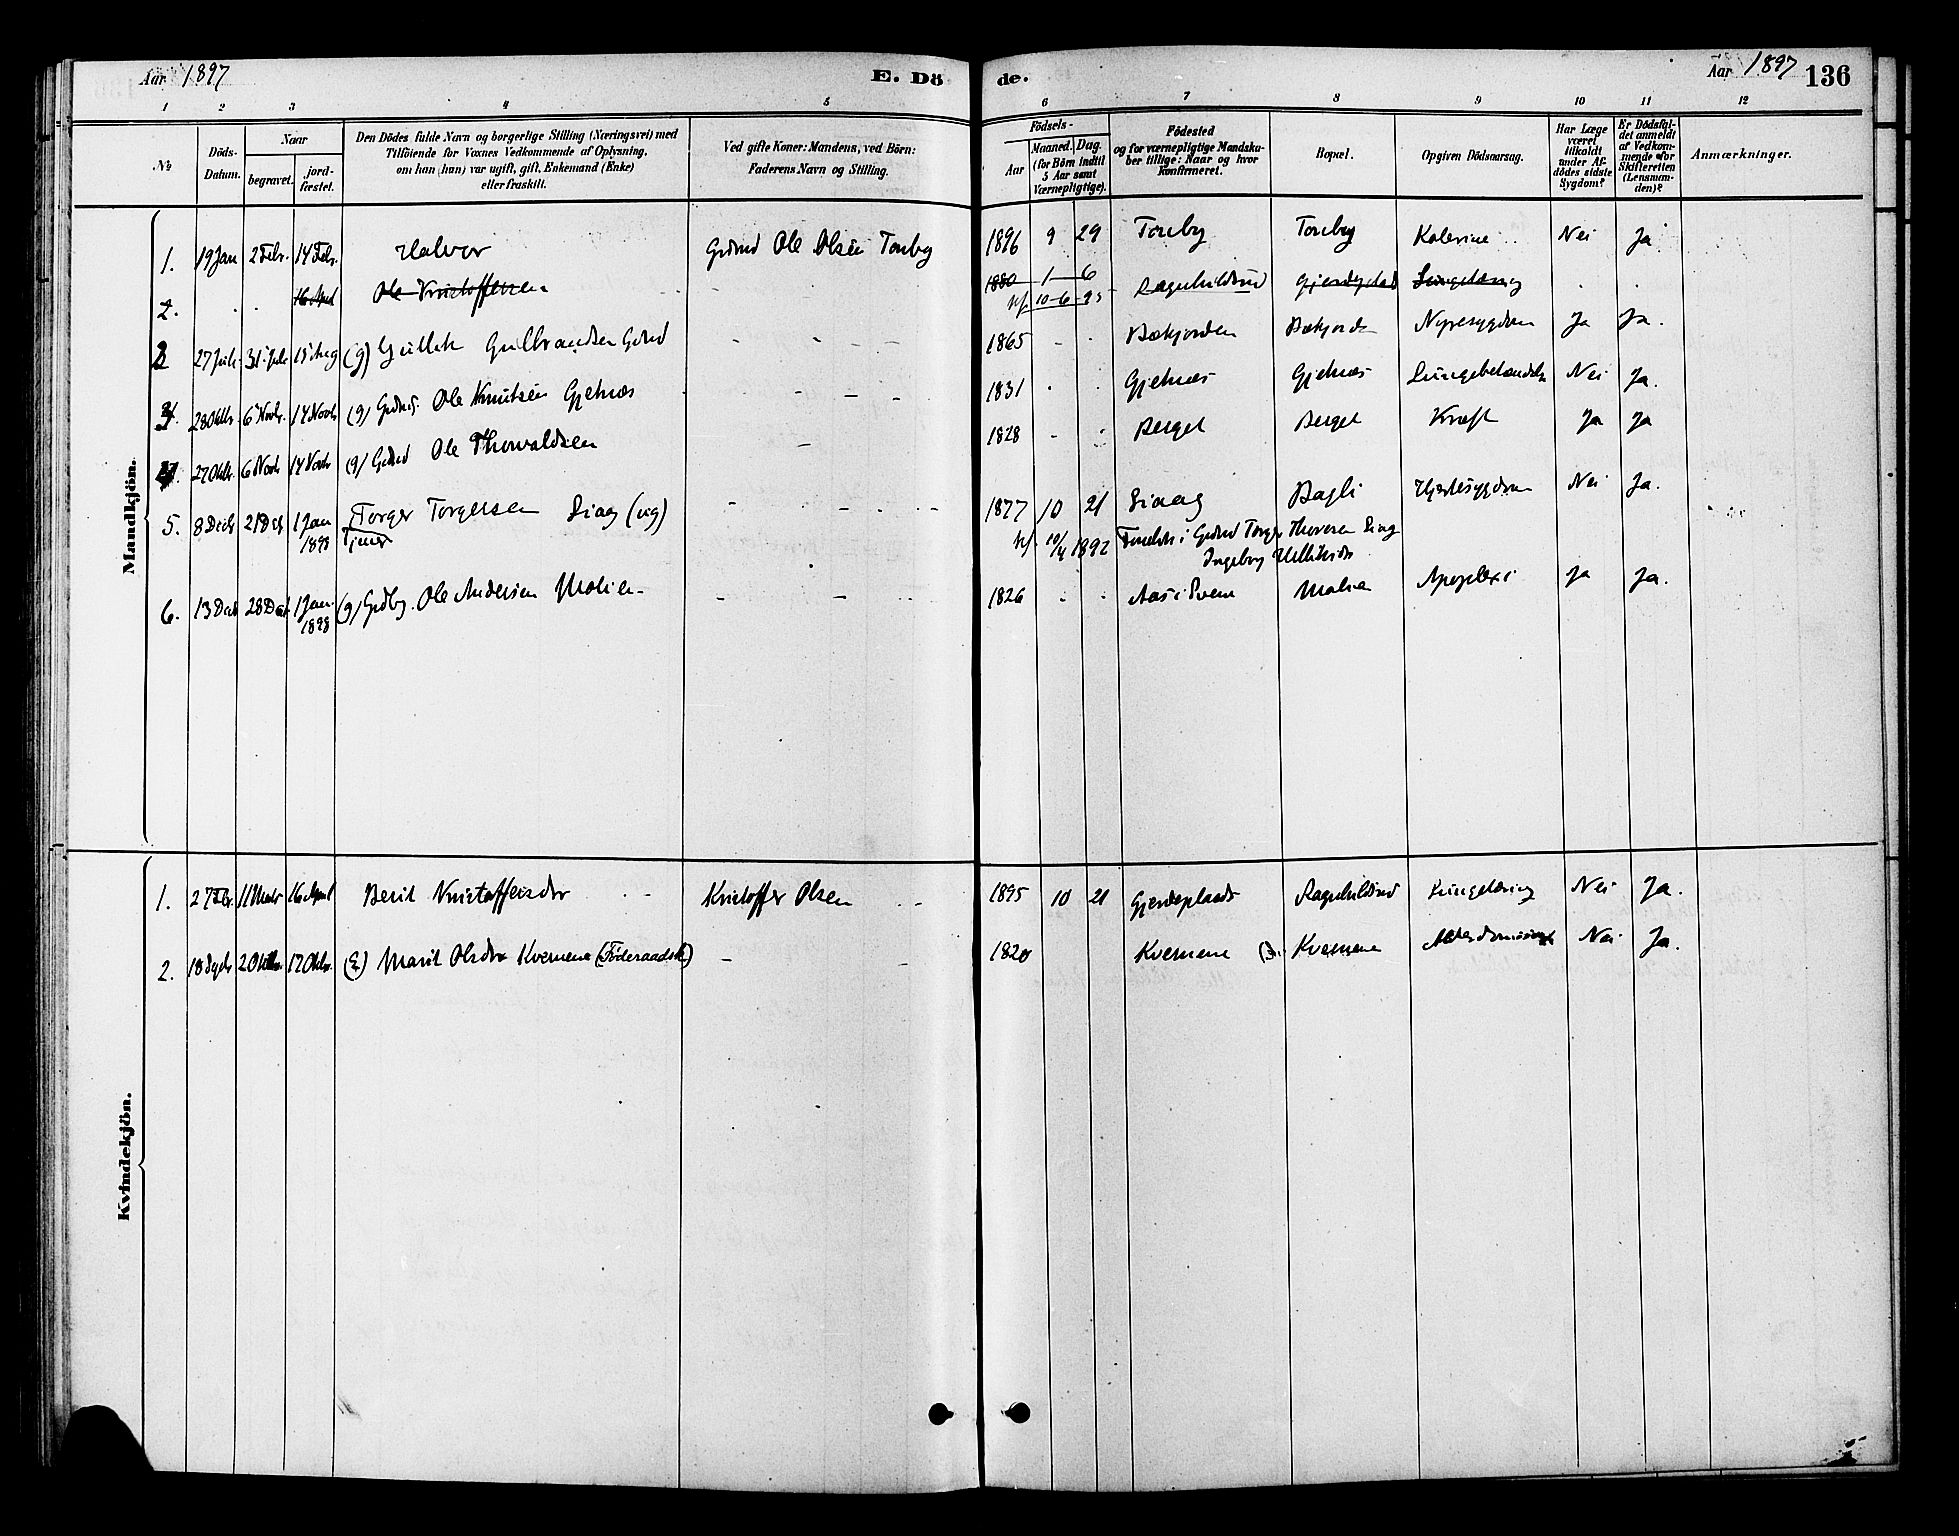 Aar 1897 E. Dö de. Aar 1897 136
1 2 3 4 5 6 7 8 9 10 11 12
No
Döds-Datum.
Naar
begravet.
jord-fæstet.
Den Dödes fulde Navn og borgerlige Stilling (Næringsvei) med
Tilföiende for Voxnes Vedkommende af Oplysning,
om han (hun) var ugift, gift, Enkemand (Enke)
eller fraskilt.
Ved gifte Koner: Mandens, ved Börn:
Faderens Navn og Stilling.
Födsels-
Aar
Maaned. Dag.
(for Börn indtil
5 Aar samt
Værnepligtige).
Födested
og for værnepligtige Mandska-
ber tillige: Naar og hvor
konfirmeret.
Bopæl.
Opgiven Dödsaarsag.
Har Læge
været
tilkaldt
under Af-
dödes sidste
Sygdom?
Er Dödsfal-
det anmeldt
af Vedkom-
mende for
Skifteretten
(Lensman-
den)?
Anmærkninger.
Mandkjön.
1. 19 Jan 2 Febr. 14 Febr. Halvor Grdmd Ole Olsen Tonby 1896 9 29 Tonby Tonby Kolerine Nei Ja
2. 16 April Ole Kristoffersen 1880 1 6 Ragnhildrud
10-6-95
27 Juli 31 Juli 15 Aug (g) Gulbrandsen 1865 Nyresygdom Ja Ja.
28 Oktbr. 6 Novbr. 14 Novbr (g) Ole Knutsen Gjelnæs 1831 Gjelnæs Gjelnæs Lungebetændelse Nei Ja.
27 Oktbr. 6 Novb 14 Novb (g) Grdmd Ole Thorvaldsen 1828 Berget Berget Kræft Ja Ja
5. 8 Decb 21 Dcb 1 Jan 1898 Torger Torgersen (ug) 1877 10 21 Bagli Hjertesygdom Nei Ja.
Tjener 10/4 1892 Grdmd Torger
Ingeborg
6. 13 Decb 28 Decb 1 Jan. 1898 (g) Ole Andersen 1826 Apoplexi Ja Ja.
Kvindekjön.
1. 27 Febr. 11 Marts 16 April Berit Kristoffersdtr Kristoffer Olsen 1895 10 21 Gjerdeplads Ragnhildrud Lungetæring Nei Ja.
2. 18 2 Oktbr 17 Oktbr. (E) Marit Olsdtr Kvernene (Föderaadsk.) 1820 Kvernene Kvernene Nei Ja.